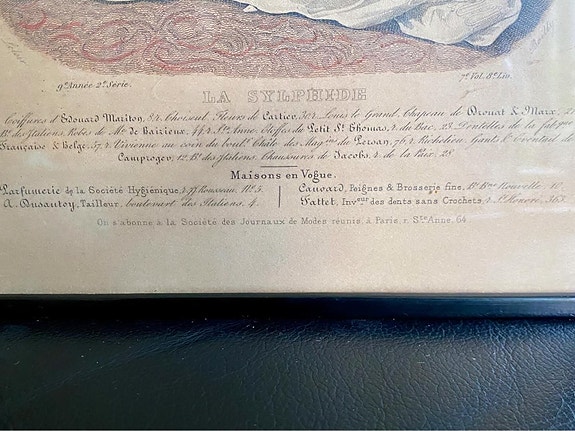 9e Année 2e Série.
7e Vol. 8e Liv.
LA SYLPHIDE
Coiffures d'Edouard Mariton, r. Choiseul, Fleurs de Cartier, r. Louis le Grand, Chapeau de Drouat & Marx,
Bt. des Italiens, Robes de Me. de Bairieux, 44, r. Ste. Anne, Etoffes du Petit St. Thomas, r. du Bac, 23, Dentelles de la
Française & Belge, 57, r. Vivienne au coin du boult. Châle des Mag.ins du Persan, 76, r. Richelieu, Gants & éventail de
Camproger, 12, Bt. des Italiens, Chaussures de Jacobs, r. de la Paix, 28
Maisons en Vogue.
Parfumerie de la Société Hygiénique, r. JJ Rousseau, No. 5.
A. Dusautoy, Tailleur, boulevart des Italiens, 4.
Canoard, Peignes & Brosserie fine, Bt. Bne. Nouvelle
Fattet, Inveur des dents sans Crochets, r. St. Honoré, 363
On s'abonne à la Société des Journaux de Modes réunis, à Paris, r. Ste Anne, 64